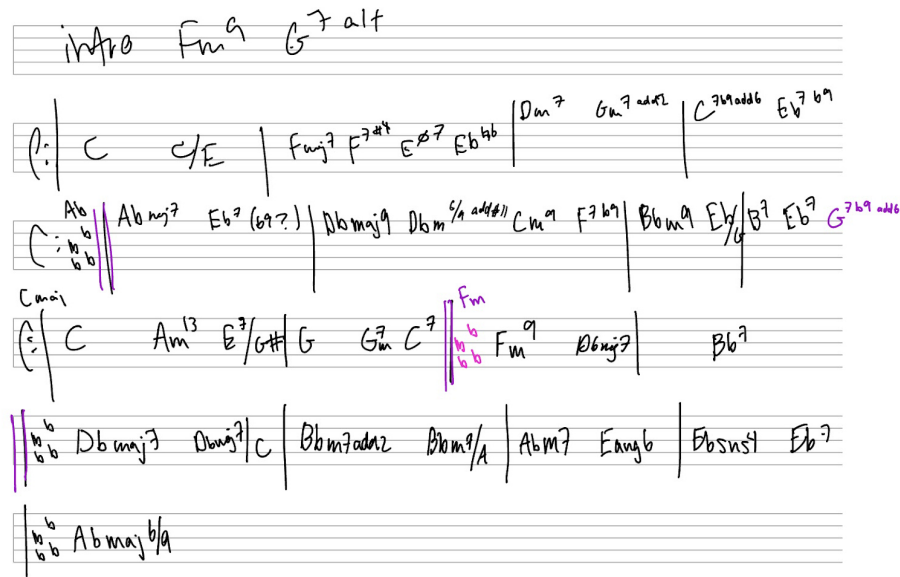 intro Fm9 G7 alt
C C/E | Fmaj7 F7#4 Eø7 Eb7b6 | Dm7 Gm7 add2 | C7b9add6 Eb7b9
Ab Abmaj7 Eb7 (b9?) | Dbmaj9 Dbm6/9 add#11 Cm9 F7b9 | Bbm9 Eb/G | B7 Eb7 G7b9 add6
Cmaj
C Am13 E7/G# | G Gm7 C7 || Fm Fm9 Dbmaj7 | Bb7
Dbmaj7 Dbmaj7/C | Bbm7add2 Bbm7/A | AbM7 Eaug6 | Ebsus4 Eb7
Abmaj6/9